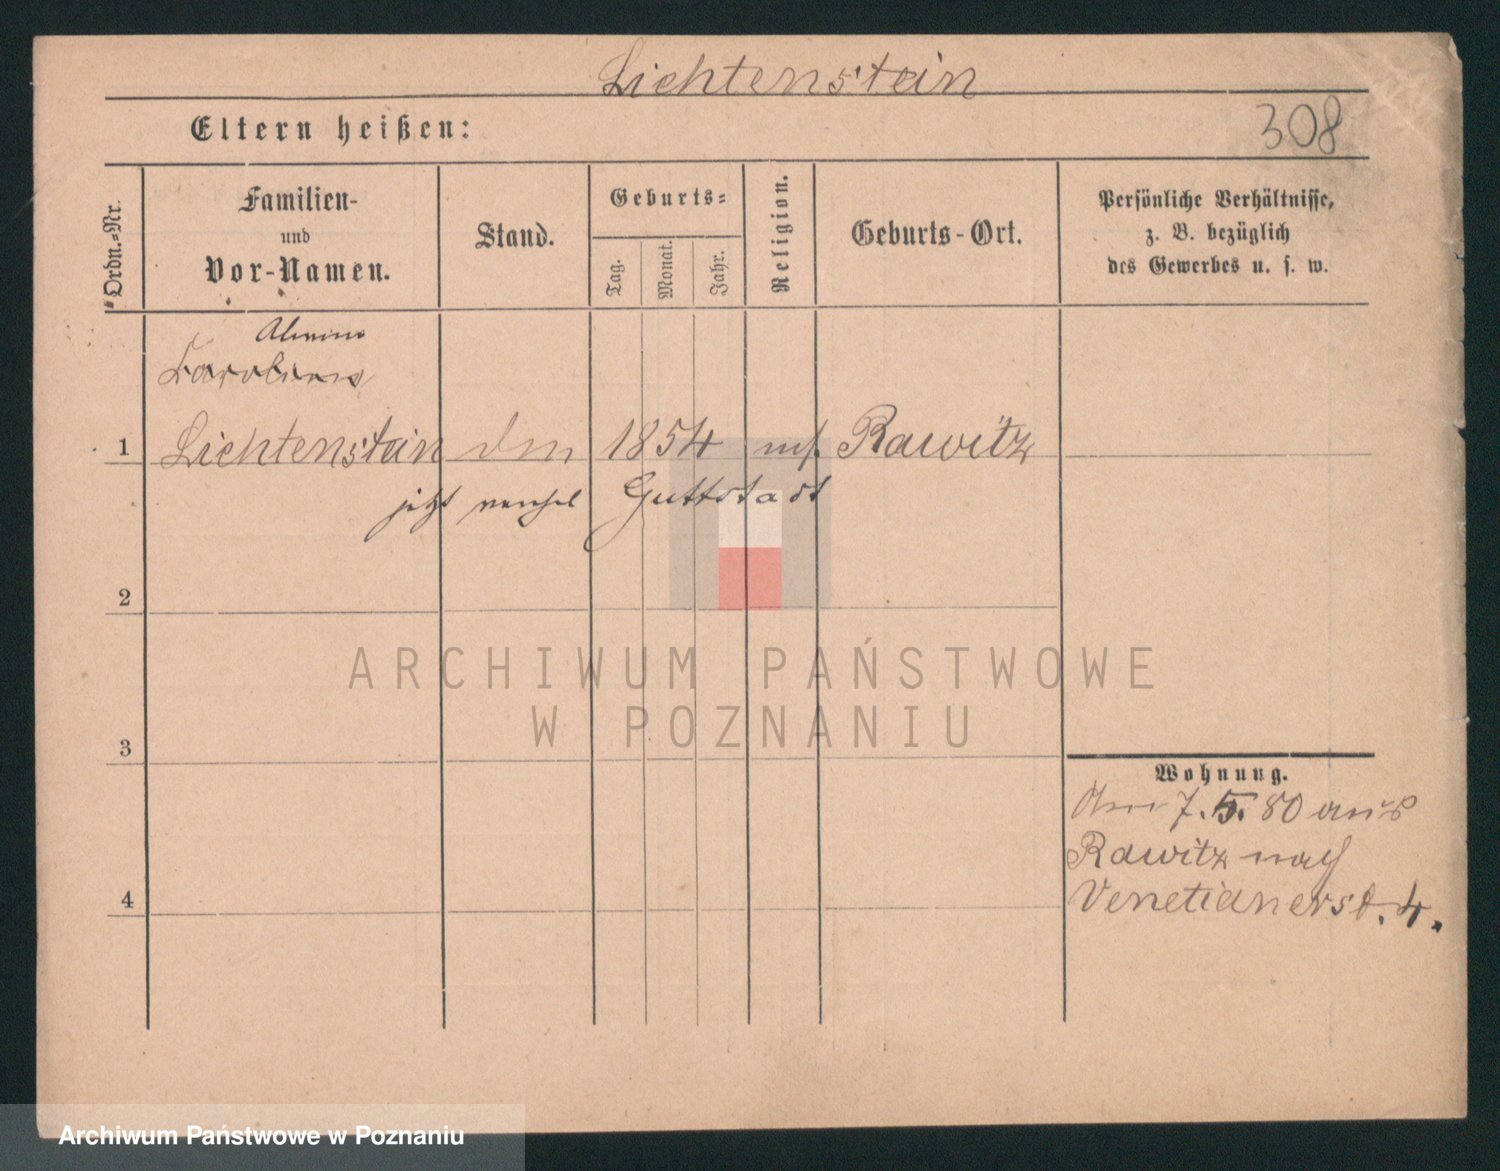 Lichtenstein
Eltern heißen:
308
Ordn.-Nr.
Familien-
und
Vor-Namen.
Stand.
Geburts-
Tag.
Monat.
Jahr.
Religion.
Geburts-Ort.
Persönliche Verhältnisse,
z. B. bezüglich
des Gewerbes u. s. w.
1
Lichtenstein 1854 Rawitz
jetzt Guttstadt
2
ARCHIWUM PAŃSTWOWE
W POZNANIU
3
4
Wohnung.
7.5.80 aus
Rawitz nach
Venetianerst. 4.
Archiwum Państwowe w Poznaniu